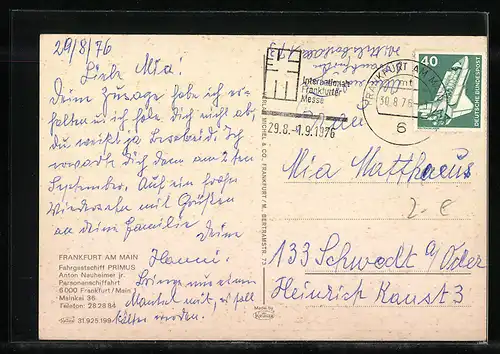 29/8/76
Liebe Mia.
Deine Zusage habe ich er-
halten u. ich hole Dich nicht ab,
du weißt ja Bescheid. Ich
erwarte Dich dann am 2ten
September. Auf ein frohes
Wiedersehn mit Grüßen
an deine Familie Deine
Hanni.
Bringe nur einen
Mantel mit, es soll
kälter werden.
FRANKFURT AM MAIN
Fahrgastschiff PRIMUS
Anton Nauheimer jr.
Personenschiffahrt
6000 Frankfurt / Main 1
Mainkai 36
Telefon: 28 28 84
31.925.199
VERLAG MICHEL & CO., FRANKFURT / M., BERTRAMSTR. 73
Internationale
Frankfurter
Messe
29.8.-1.9.1976
FRANKFURT AM MAIN
30.8.76
6
40
DEUTSCHE BUNDESPOST
Mia Matthaeus
2.-€
133 Schwedt a/Oder
Heinrich